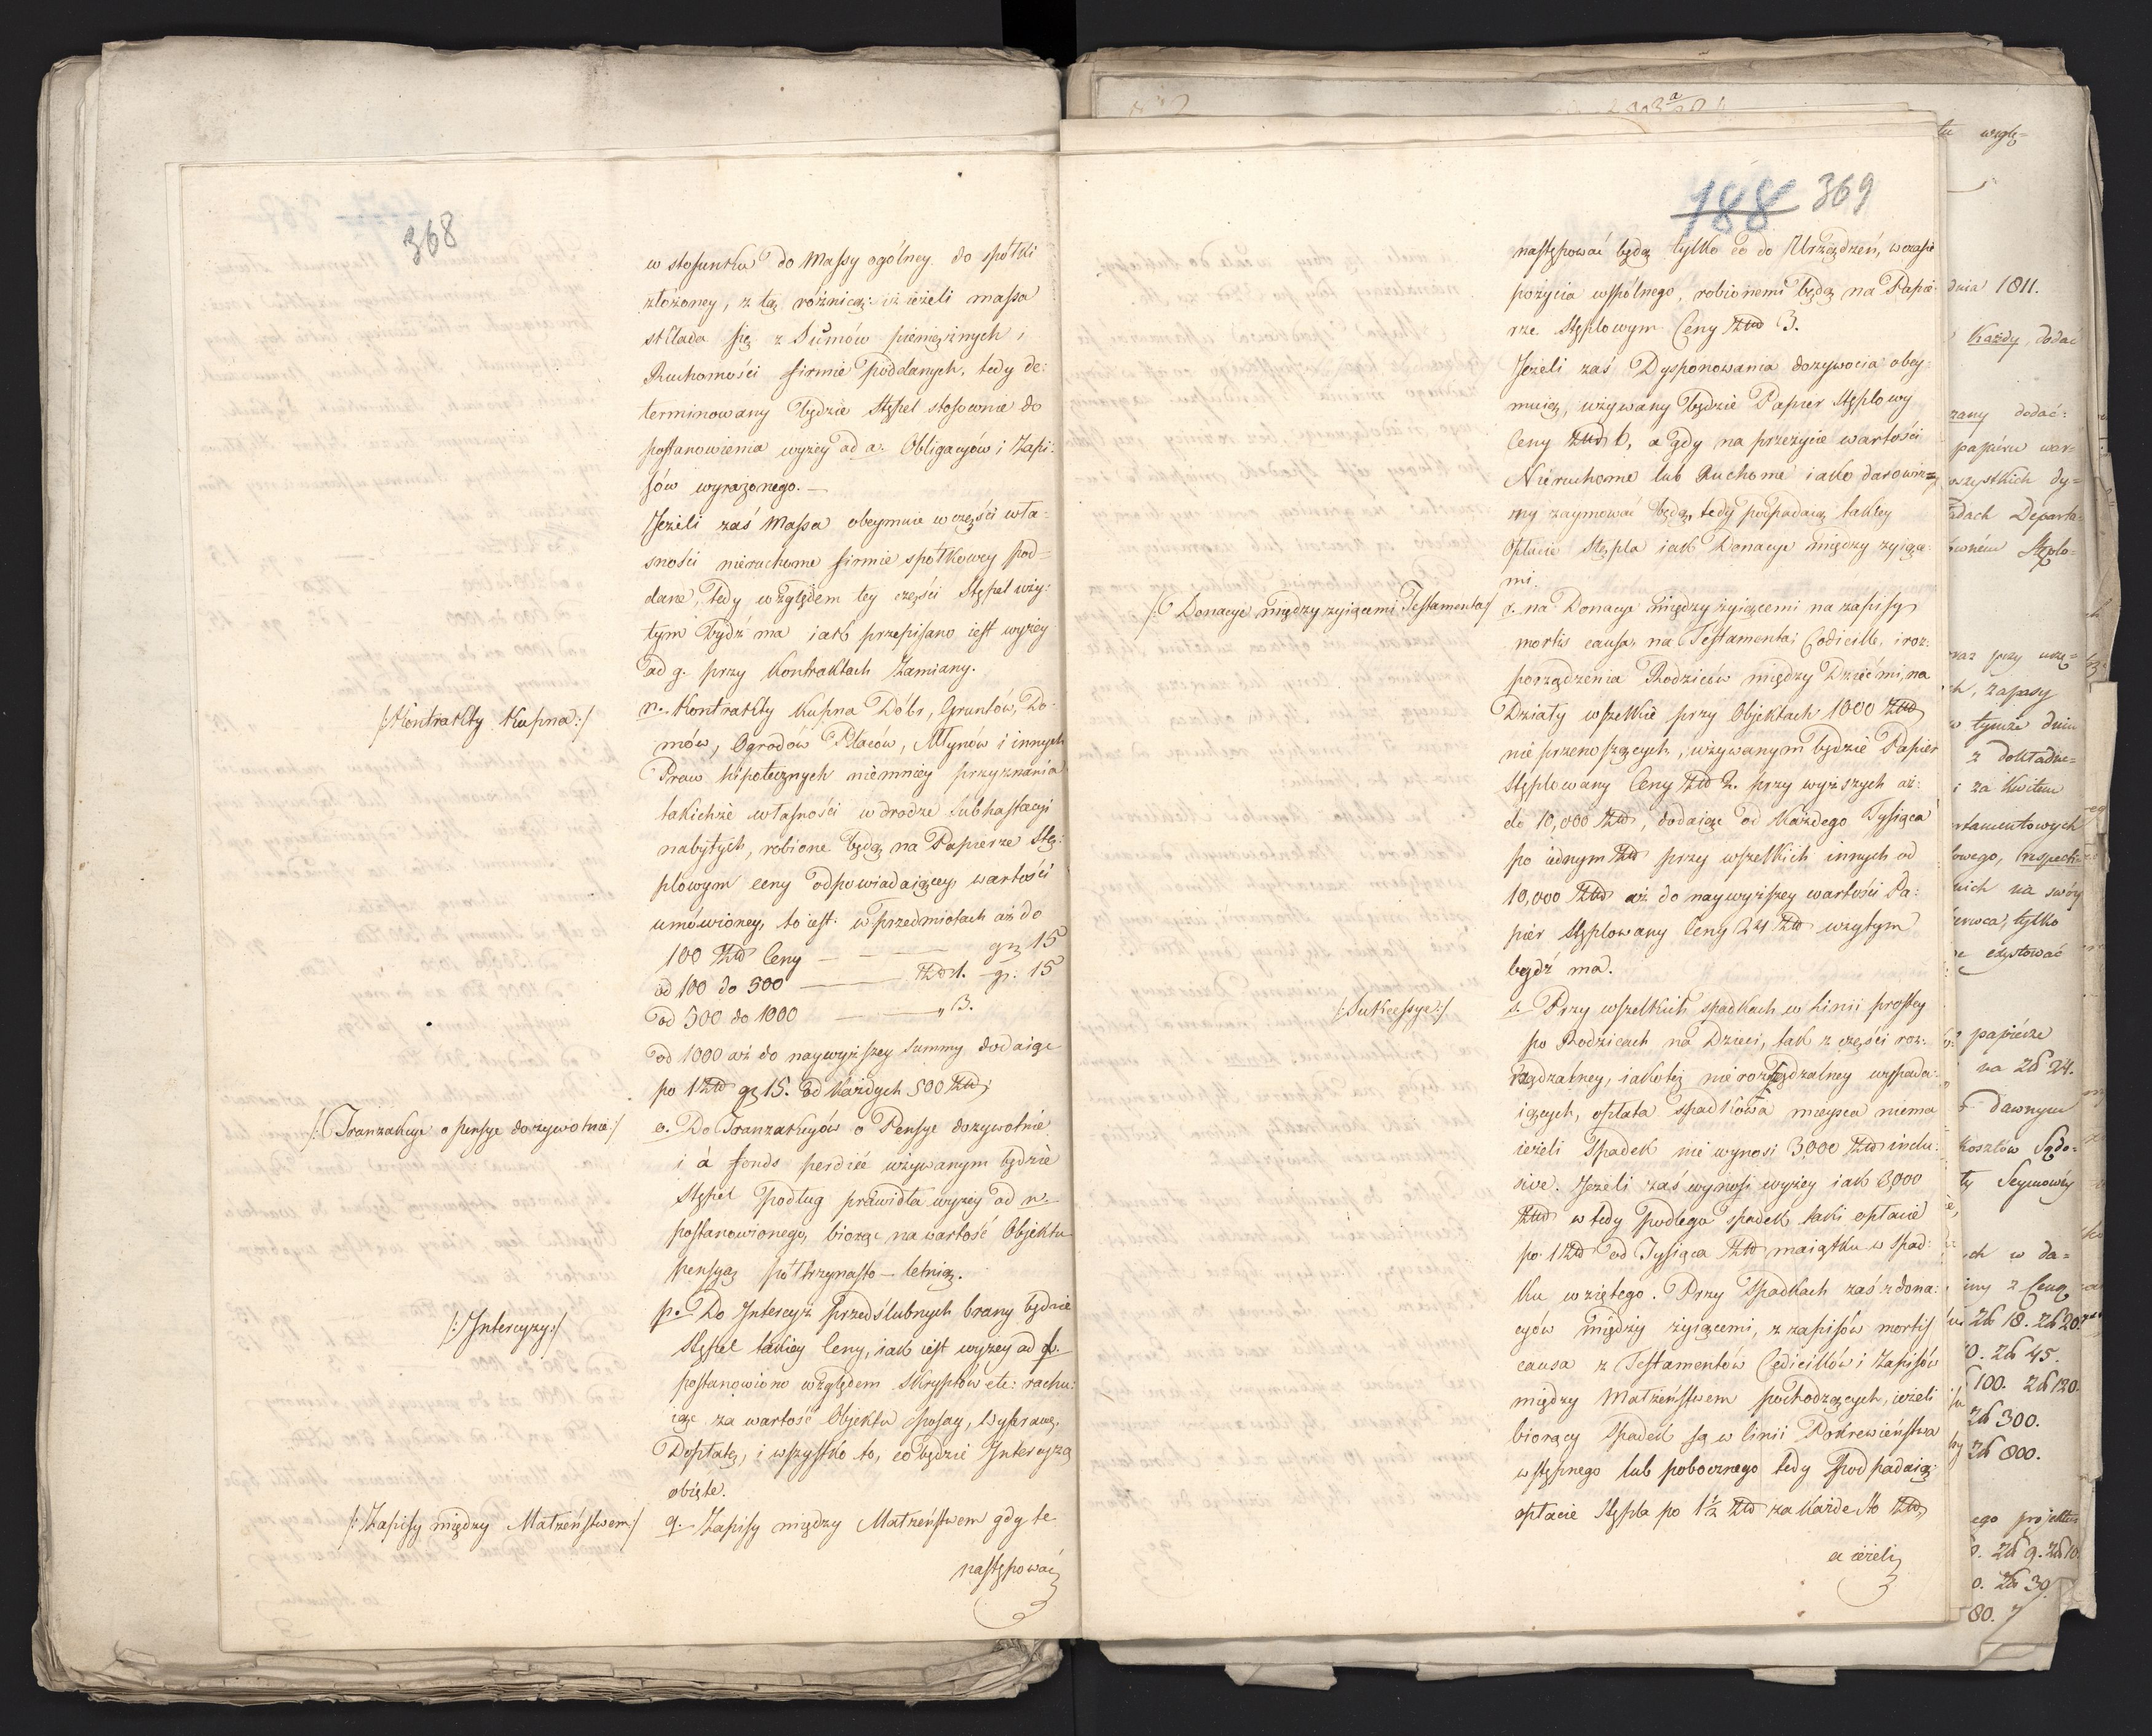 368
w stosunku do Massy ogólney do spółki
złożoney, z tą różnicą: iż ieżeli massa
składa się z Summów pieniężnych i
Ruchomości firmie poddanych, tedy de:
terminowany będzie Stępel stosownie do
postanowienia wyżey ad a. Obligacyów i Zapi:
sów wyrażonego. —
Jeżeli zaś Massa obeymuie w części wła:
sności nieruchome firmie spółkowey pod=
dane, tedy względem tey części Stępel uży:
tym bydź ma iak przepisano iest wyżey
ad g. przy Kontraktach Zamiany.
/:Kontrakty Kupna:/
n. Kontrakty Kupna Dóbr, Gruntów, Do:
mów, Ogrodów Placów, Młynów i innych
Praw hipotecznych niemniey przyznania
takichże własności w drodze subhastacyi
nabytych, robione będą na Papierze Stę:
plowym ceny odpowiadaiącey wartości
umówioney, to iest: w przedmiotach aż do
100 Złł Ceny — — — gr 15
od 100 do 500 — — Złł 1. gr: 15
od 500 do 1000 — — " 3.
od 1000 aż do naywyższey Summy dodaiąc
po 1 Złł gr 15. od każdych 500 Złł;
/:Tranzakcye o pensye dożywotnie:/
o. Do Tranzakcyów o Pensye dożywotnie
i à fonds perdiéé używanym będzie
Stępel podług prawidła wyżey ad n.
postanowionego, biorąc na wartość Objektu
pensyą półtrzynasto-letnią.
/:Intercyzy:/
p. Do Intercyz przedślubnych brany będzie
Stępel takiey Ceny, iak iest wyżey ad
postanowiono względem Skryptów etc: rachu:
iąc za wartość Objektu posag, Wyprawę,
Dopłatę, i wszystko to, co będzie Intercyzą
obięte.
/:Zapisy między Małżeństwem:/
q. Zapisy między Małżeństwem gdy te
następować
188 369
następować będą tylko co do Urządzeń, w czasie
pożycia wspólnego, robionemi będą na Papie:
rze Stęplowym Ceny Złł 3.
Jeżeli zaś Dysponowania dożywocia obey:
muią, używany będzie Papier Stęplowy
Ceny Złł 6, a gdy na przeżycie wartości
Nieruchome lub Ruchome iako darowiz=
ny zaymować będą, tedy podpadaią takiey
Opłacie Stępla iak Donacye między żyiące:
mi.
/: Donacye między żyiącemi Testamenta/
r. na Donacye między żyiącemi na zapisy
mortis causa, na Testamenta, Codicille, i roz:
porządzenia Rodziców między Dziećmi, na
Działy wszelkie przy Objektach 1000 Złł
nie przenoszących, używanym będzie Papier
Stęplowany Ceny Złł 2. przy wyższych aż:
do 10,000 Złł, dodaiąc od Każdego Tysiąca
po iednym Złł przy wszelkich innych od
10,000 Złł aż do naywyższey wartości Pa:
pier Stęplowany Ceny 24 Złł wzytym
bydź ma.
/:Sukcessye:/
s. Przy wszelkich spadkach w linii prostey
po Rodzicach na Dzieci, tak z części roz:
rządzalney, iakoteż nierozrządzalney wypada:
iących, opłata spadkowa mieysca niema
ieżeli Spadek nie wynosi 3,000 Złł inclu:
sive. Jeżeli zaś wynosi wyżey iak 3,000
Złł wtedy podlega spadek taki opłacie
po 1 Złł od Tysiąca Złł maiątku w Spad:
ku wziętego. Przy Spadkach zaś z dona:
cyów między żyiącemi, z zapisów mortis
causa z Testamentów Codicillów i Zapisów
między Małżeństwem pochodzących, ieżeli
biorący Spadek są w linii Pokrewieństwa
wstępnego lub pobocznego tedy podpadaią
opłacie Stępla po 1½ Złł za każde sto Złł,
a ieżeli
tu wzglę=
dnia 1811.
Każdy dodać
dodać:
papieru war=
wszystkich dy=
Departa=
Stęplo=
przy
, zapasy
w tymże dniu
z dokładne=
i za kwitem
lowego, respecti
nich na swóy
czerwca, tylko
exystować
papierze
na 26 24.
dawnym
kosztów Sądo=
Seymowy
w da=
z Ceną
26 18. 26 20
0. 26 45.
100. 26 120.
26 300.
26 800.
ego projektu
26 9. 26 10
0. 26 30.
80.